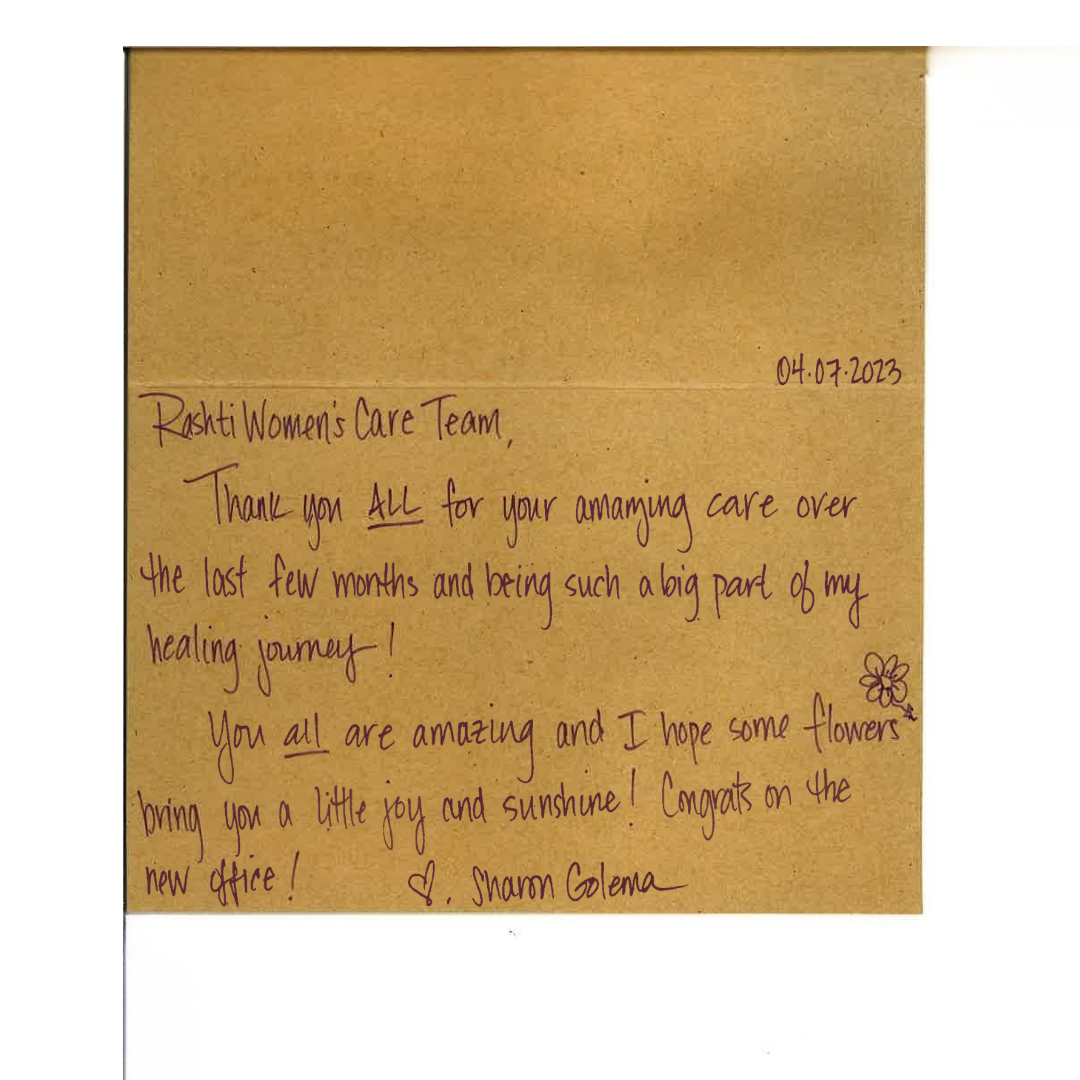 04.07.2023
Rashti Women's Care Team,
Thank you ALL for your amazing care over
the last few months and being such a big part of my
healing journey!
You all are amazing and I hope some flowers
bring you a little joy and sunshine! Congrats on the
new office! ♡, Sharon Golema